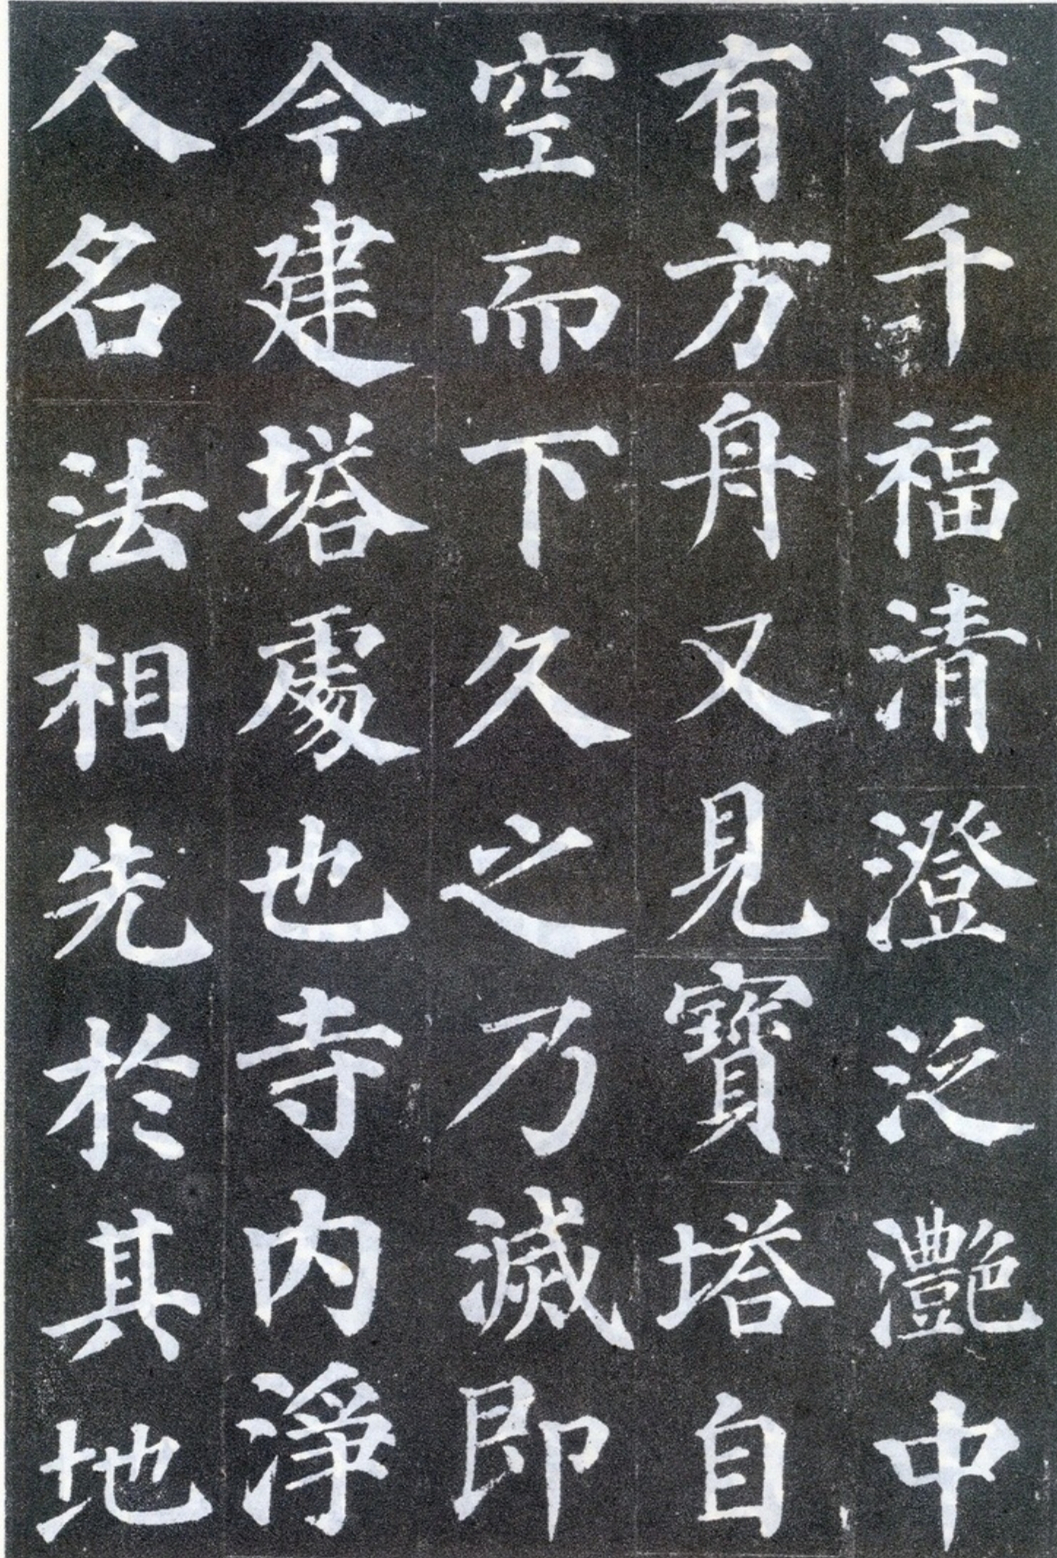 注千福清澄泛灩中
有方舟又見寶塔自
空而下久之乃滅即
今建塔處也寺內淨
人名法相先於其地